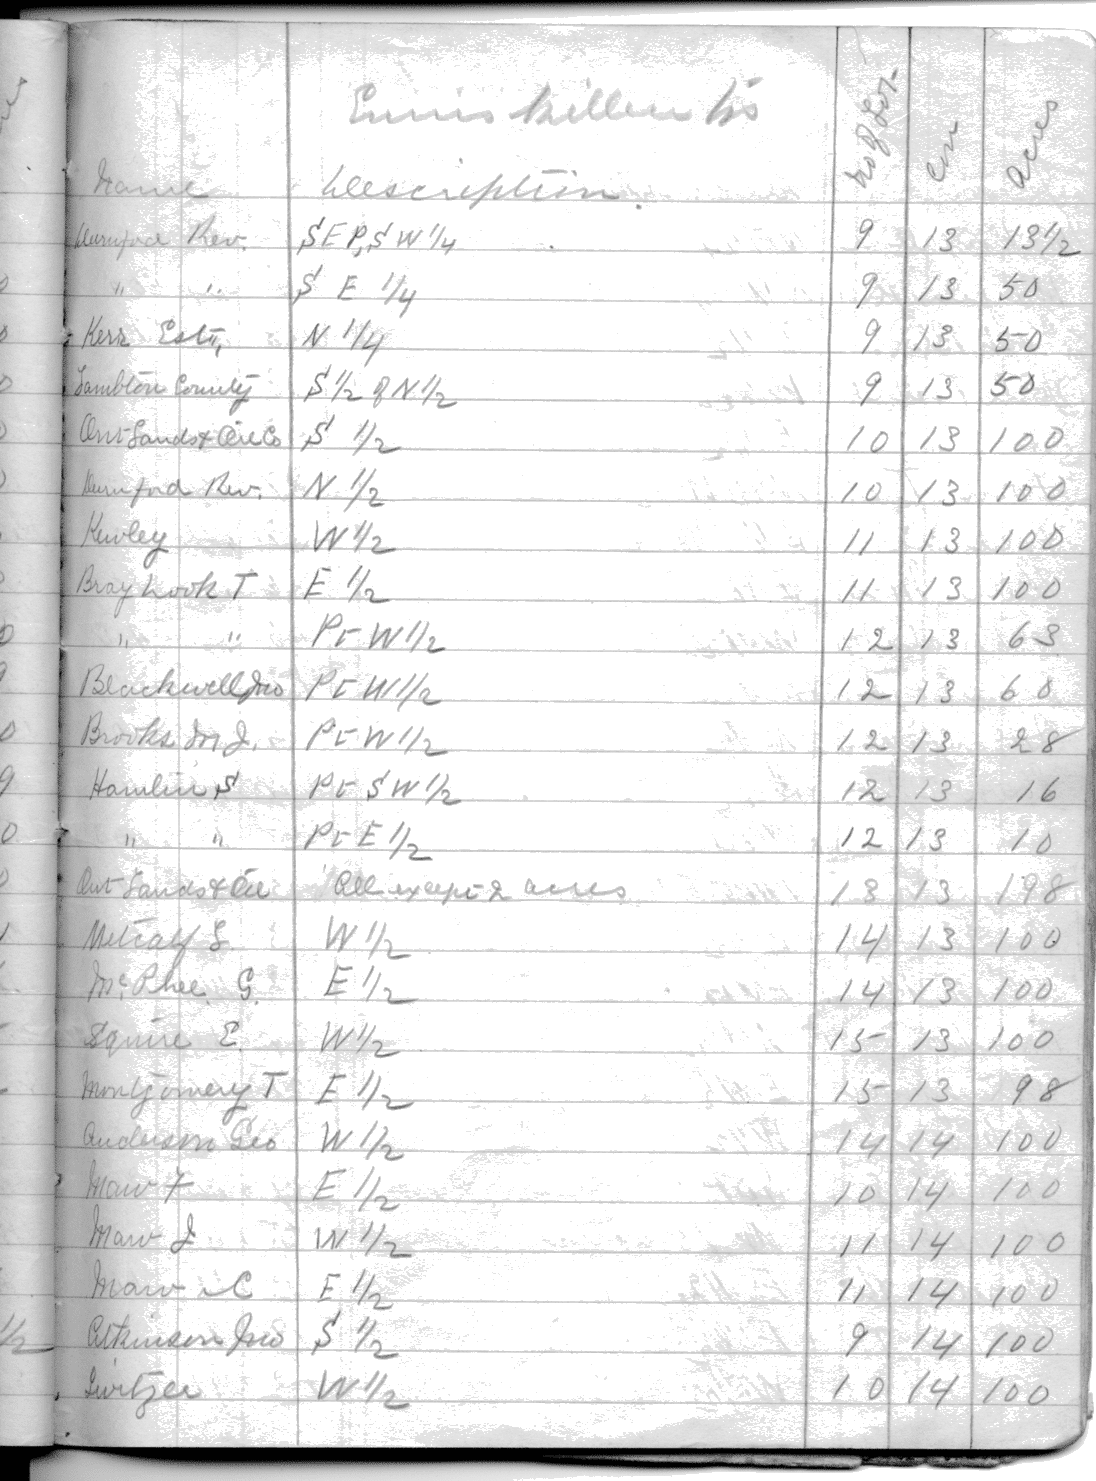 Enniskillen Tp
Name Description. No of Lot Con Acres
Durnford Rev. S E Pt S W 1/4 9 13 13 1/2
" " S E 1/4 9 13 50
Kerr Est, N 1/4 9 13 50
Lambton County S 1/2 of N 1/2 9 13 50
Ont Lands & Oil Co S 1/2 10 13 100
Durnford Rev. N 1/2 10 13 100
Kewley W 1/2 11 13 100
Bray hook T E 1/2 11 13 100
" " Pt W 1/2 12 13 63
Blackwell Jno Pt W 1/2 12 13 60
Brooks M J. Pt W 1/2 12 13 28
Hamlin S Pt S W 1/2 12 13 16
" " Pt E 1/2 12 13 10
Ont Lands & Oil All except 2 acres 13 13 198
Metcalf L W 1/2 14 13 100
McPhee G. E 1/2 14 13 100
Squire E. W 1/2 15 13 100
Montgomery T E 1/2 15 13 98
Anderson Geo W 1/2 14 14 100
Maw F E 1/2 10 14 100
Maw J W 1/2 11 14 100
Maw C E 1/2 11 14 100
Atkinson Jno S 1/2 9 14 100
Switzer W 1/2 10 14 100